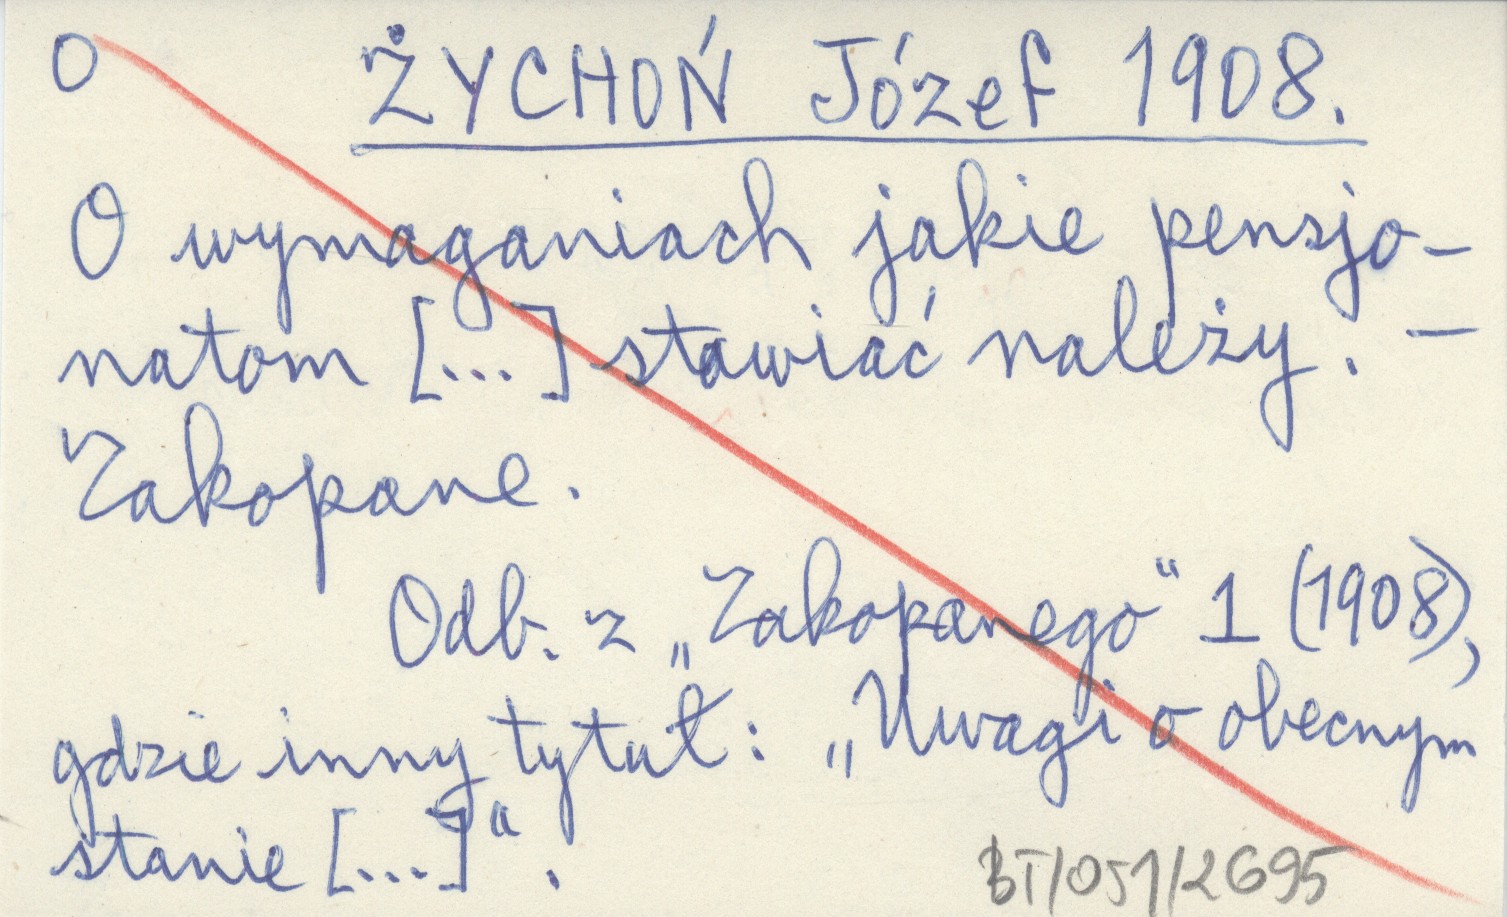 O ŻYCHOŃ Józef 1908.
O wymaganiach jakie pensjo-
natom [...] stawiać należy. —
Zakopane.
Odb. z „Zakopanego" 1 (1908),
gdzie inny tytuł: „Uwagi o obecnym
stanie [...]".
BT/051/2695